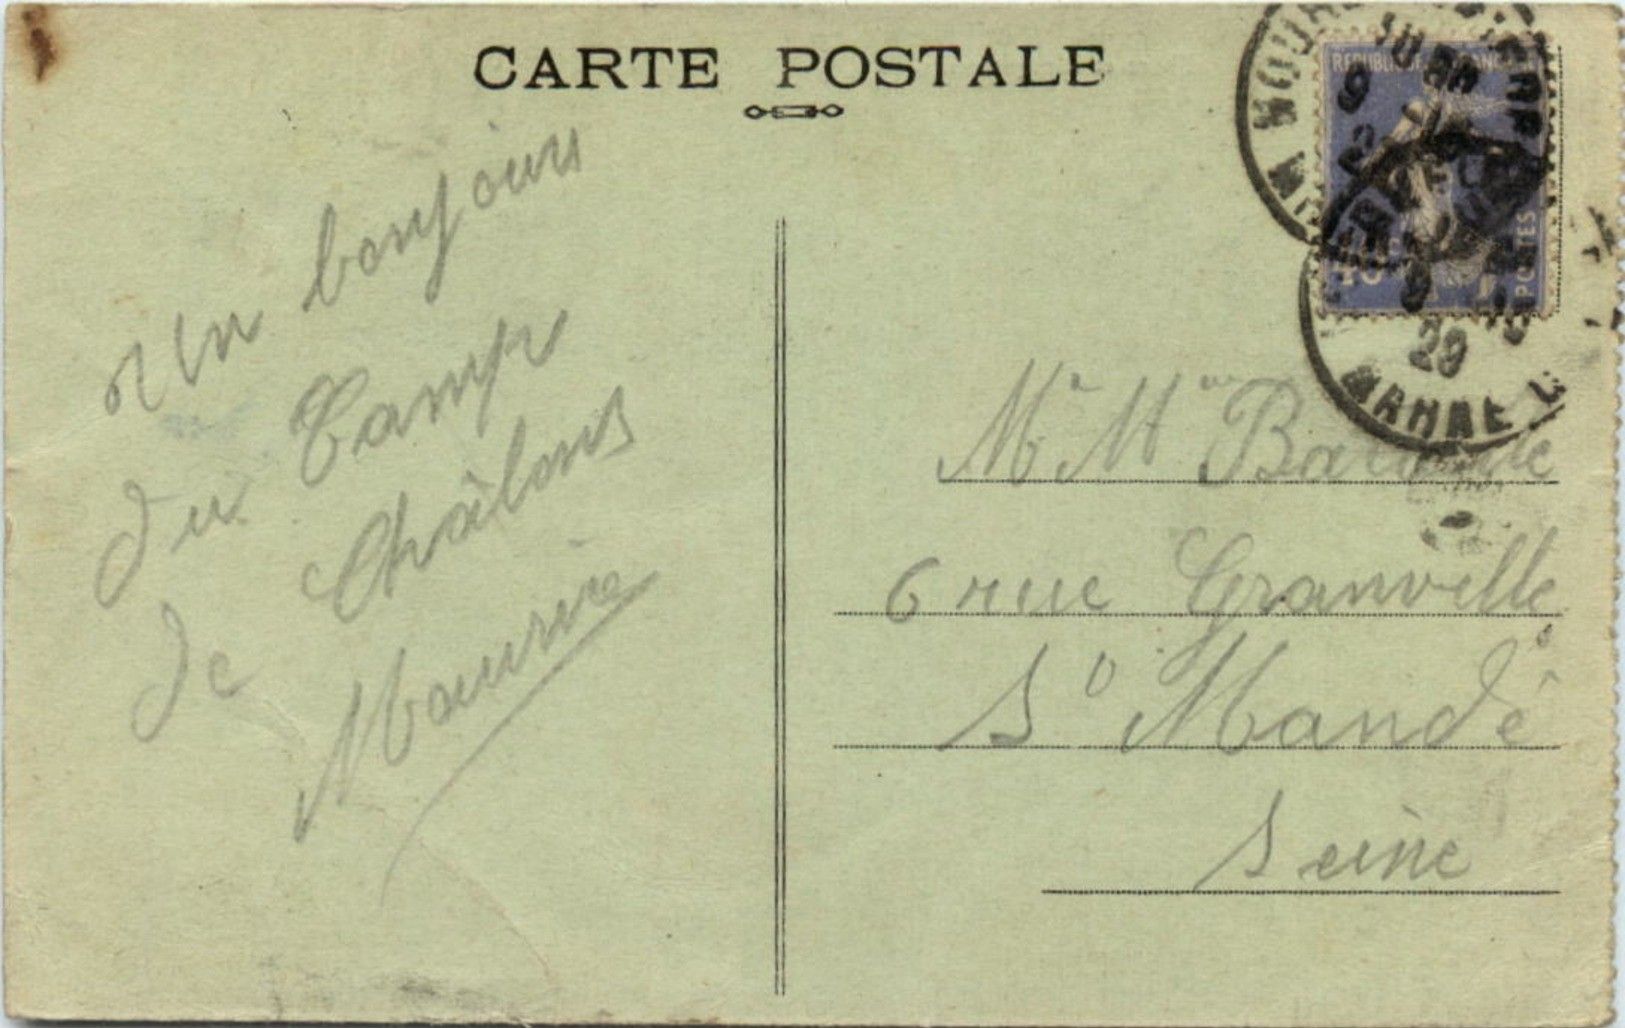 CARTE POSTALE
Un bonjour
du Camp
de Châlons
Maurice
Mr Mme
6 rue Granville
St Mandé
Seine
REPUBLIQUE FRANCAISE
POSTES
29
MARNE